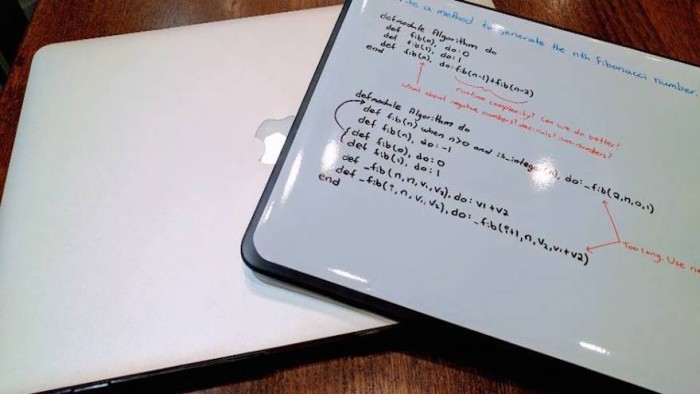 a method to generate the nth Fibonacci number.
defmodule Algorithm do
def fib(0), do: 0
def fib(1), do: 1
def fib(n), do: fib(n-1)+fib(n-2)
end
runtime complexity? Can we do better?
What about negative numbers? decimals? non-numbers?
defmodule Algorithm do
def fib(n) when n>0 and is_integer(n), do: _fib(2,n,0,1)
def fib(n), do: -1
def fib(0), do: 0
def fib(1), do: 1
def _fib(n,n,v1,v2), do: v1+v2
def _fib(i,n,v1,v2), do: _fib(i+1,n,v2,v1+v2)
end
Too long. Use